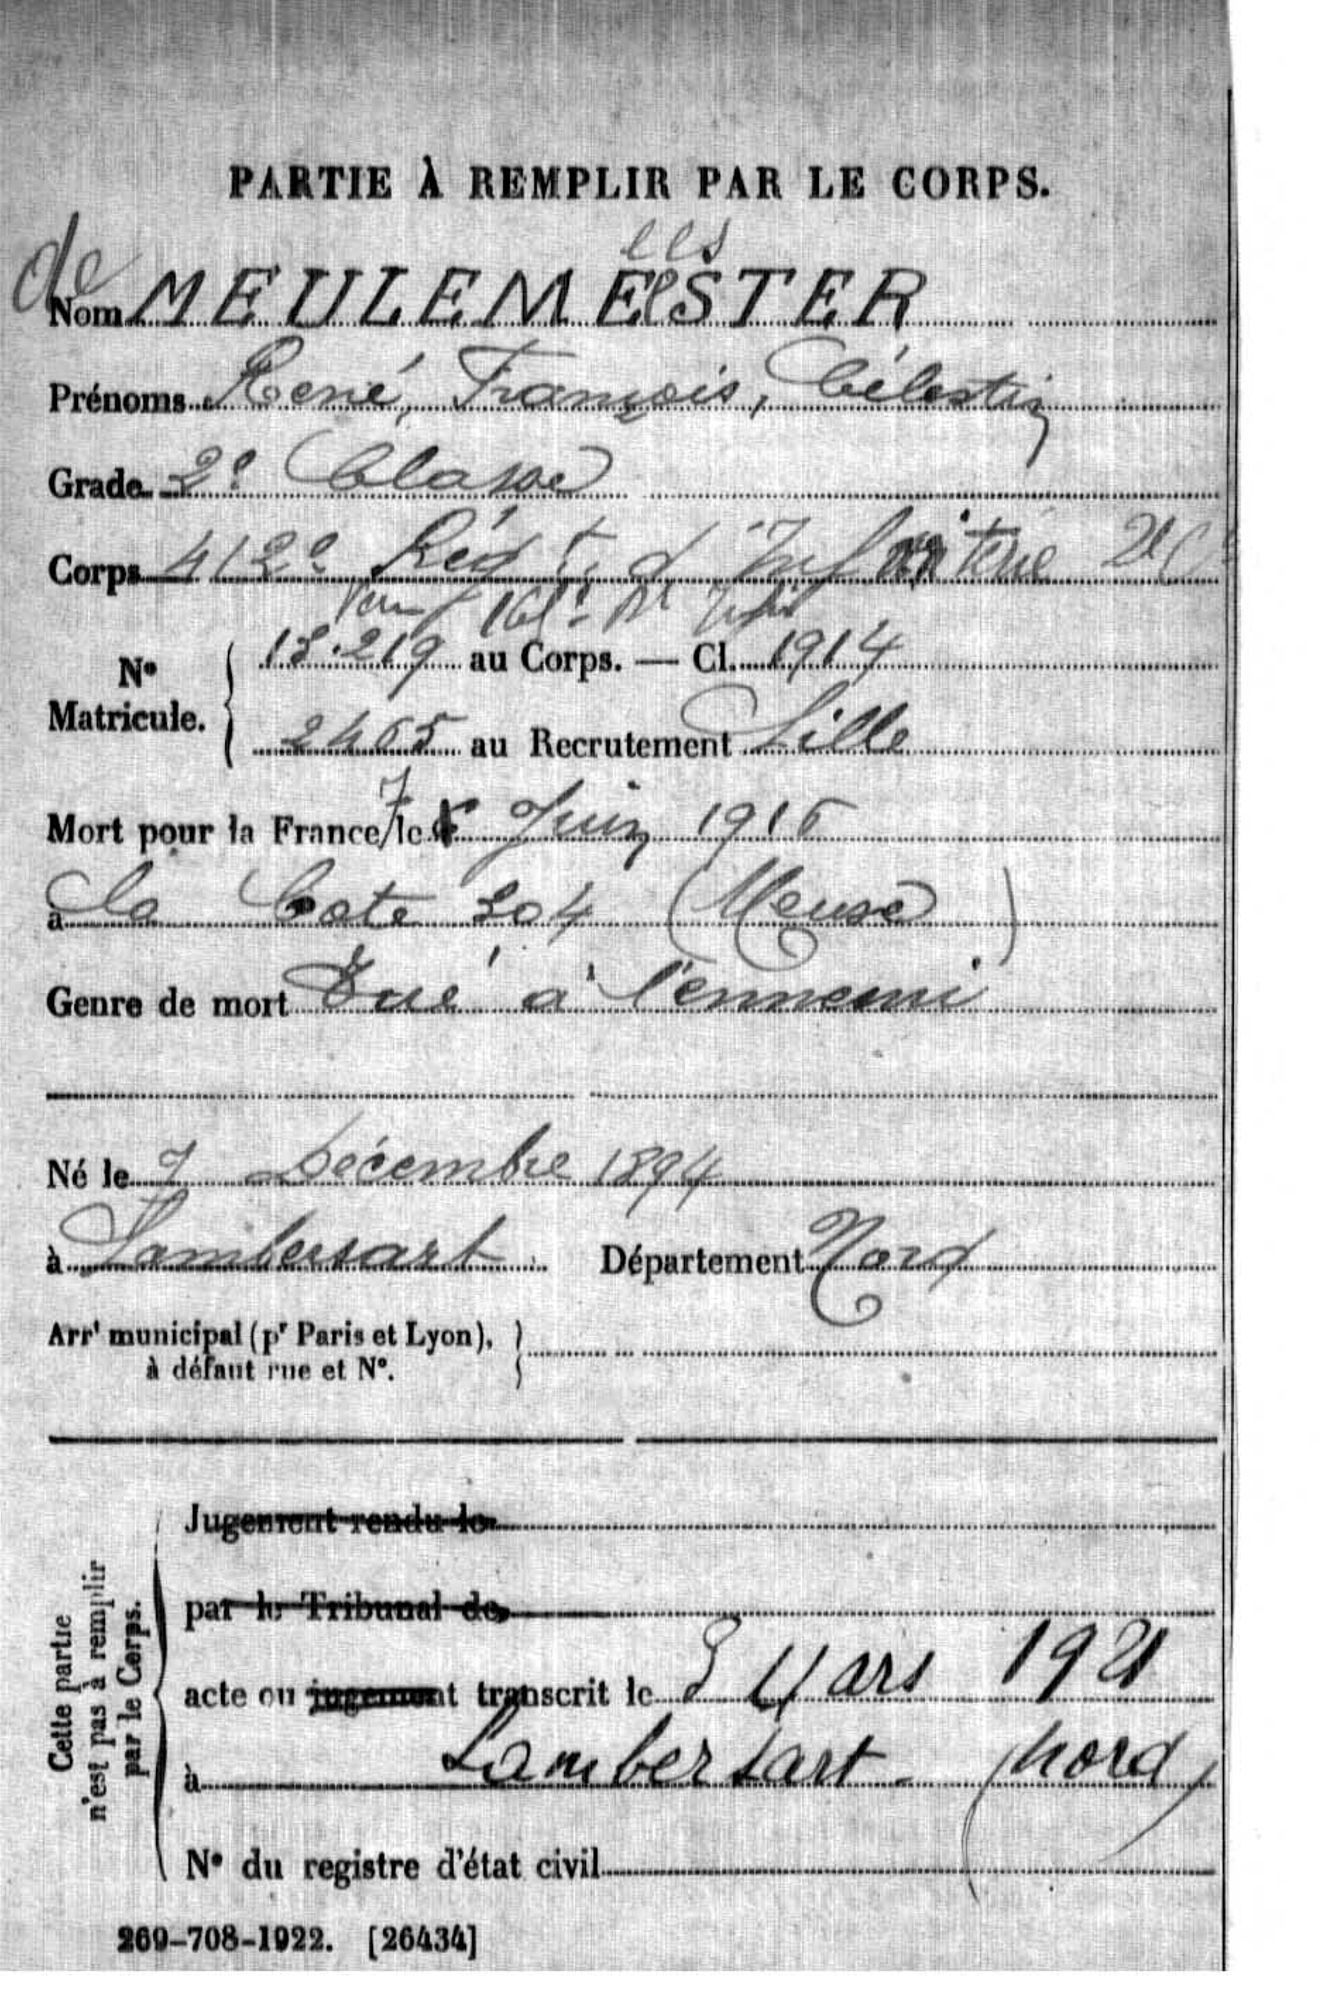 PARTIE À REMPLIR PAR LE CORPS.
ees
de
Nom MEULEMEESTER
Prénoms René, François, Célestin
Grade 2e Classe
Corps 412e Régt. d'Infanterie
N° Matricule. 13.219 au Corps. — Cl. 1914
2465 au Recrutement Lille
7
Mort pour la France le Juin 1916
à la Cote 304 (Meuse)
Genre de mort Tué à l'ennemi
Né le 7 Décembre 1894
à Lambersart Département Nord
Arrt municipal (pr Paris et Lyon),
à défaut rue et N°.
Cette partie
n'est pas à remplir
par le Corps.
Jugement rendu le
par le Tribunal de
acte ou jugement transcrit le 3 Mars 1921
à Lambersart - (Nord)
N° du registre d'état civil
269-708-1922. [26434]